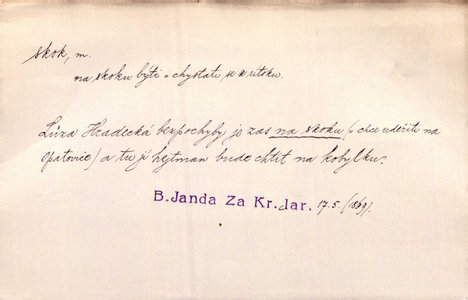 skok, m.
na skoku býti = chystati se k útoku.
Lůza Hradecká bezpochyby je zas na skoku (: chce udeřiti na
Opatovice) a tu jí hejtman bude chtít na kobylku.
B. Janda Za Kr. Jar. 17.5. (1869).